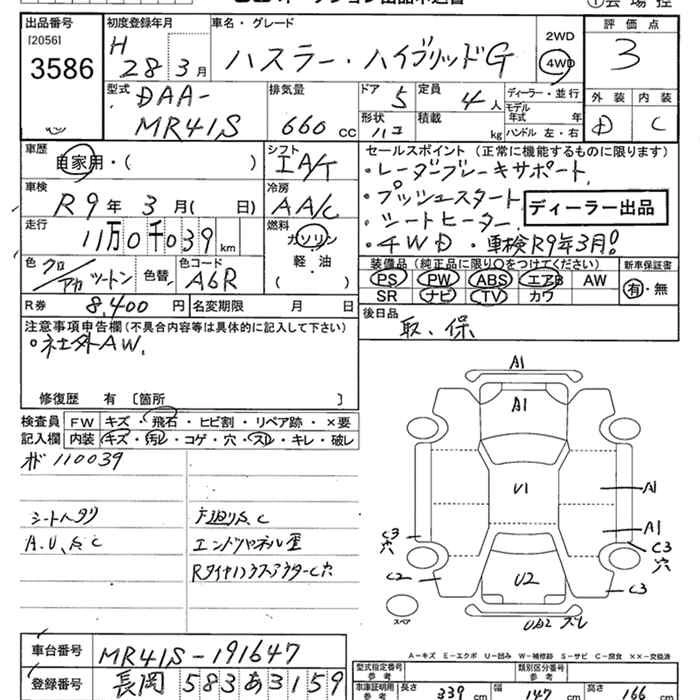 出品番号
[2056]
3586
初度登録年月
H
28 3月
車名・グレード
ハスラー・ハイブリッドG
2WD
4WD
評価点
3
型式
DAA-
MR41S
排気量
660 cc
ドア
5
定員
4人
形状
ハコ
積載
kg
ディーラー・並行
モデル
年式 年
ハンドル 左・右
外装
D
内装
C
車歴
自家用・( )
シフト
IA/T
車検
R9年 3月( 日)
冷房
AA/C
走行
11万0千039 km
燃料
ガソリン
軽・油
( )
色
クロ/アカ ツートン
色替
色コード
A6R
R券 8,400 円
名変期限 月 日
セールスポイント (正常に機能するものに限ります)
・レーダーブレーキサポート
・プッシュスタート
・シートヒーター
・4WD ・車検R9年3月!
ディーラー出品
装備品 (純正品に限り○をつけてください)
PS PW ABS エアB AW
SR ナビ TV カワ
新車保証書
有・無
後日品
取、保
注意事項申告欄 (不具合内容等は具体的に記入して下さい)
・社外AW.
修復歴 有 〔箇所 〕
検査員
記入欄
FW キズ・飛石・ヒビ割・リペア跡・×要
内装 キズ・汚レ・コゲ・穴・スレ・キレ・破レ
110039
シートヘタリ
下廻りS、C
エンドパネル歪
A1
A1
U1
A1
A1
C3
穴
C3
穴
C2
C3
U2
スペア
A-キズ E-エクボ U-凹み W-補修跡 S-サビ C-腐食 ××-交換済
車台番号
MR41S-191647
登録番号
長岡 583 あ 3159
型式指定番号
参考
類別区分番号
参考
車庫証明用
参考
長さ 339 cm
幅 147 cm
高さ 166 cm